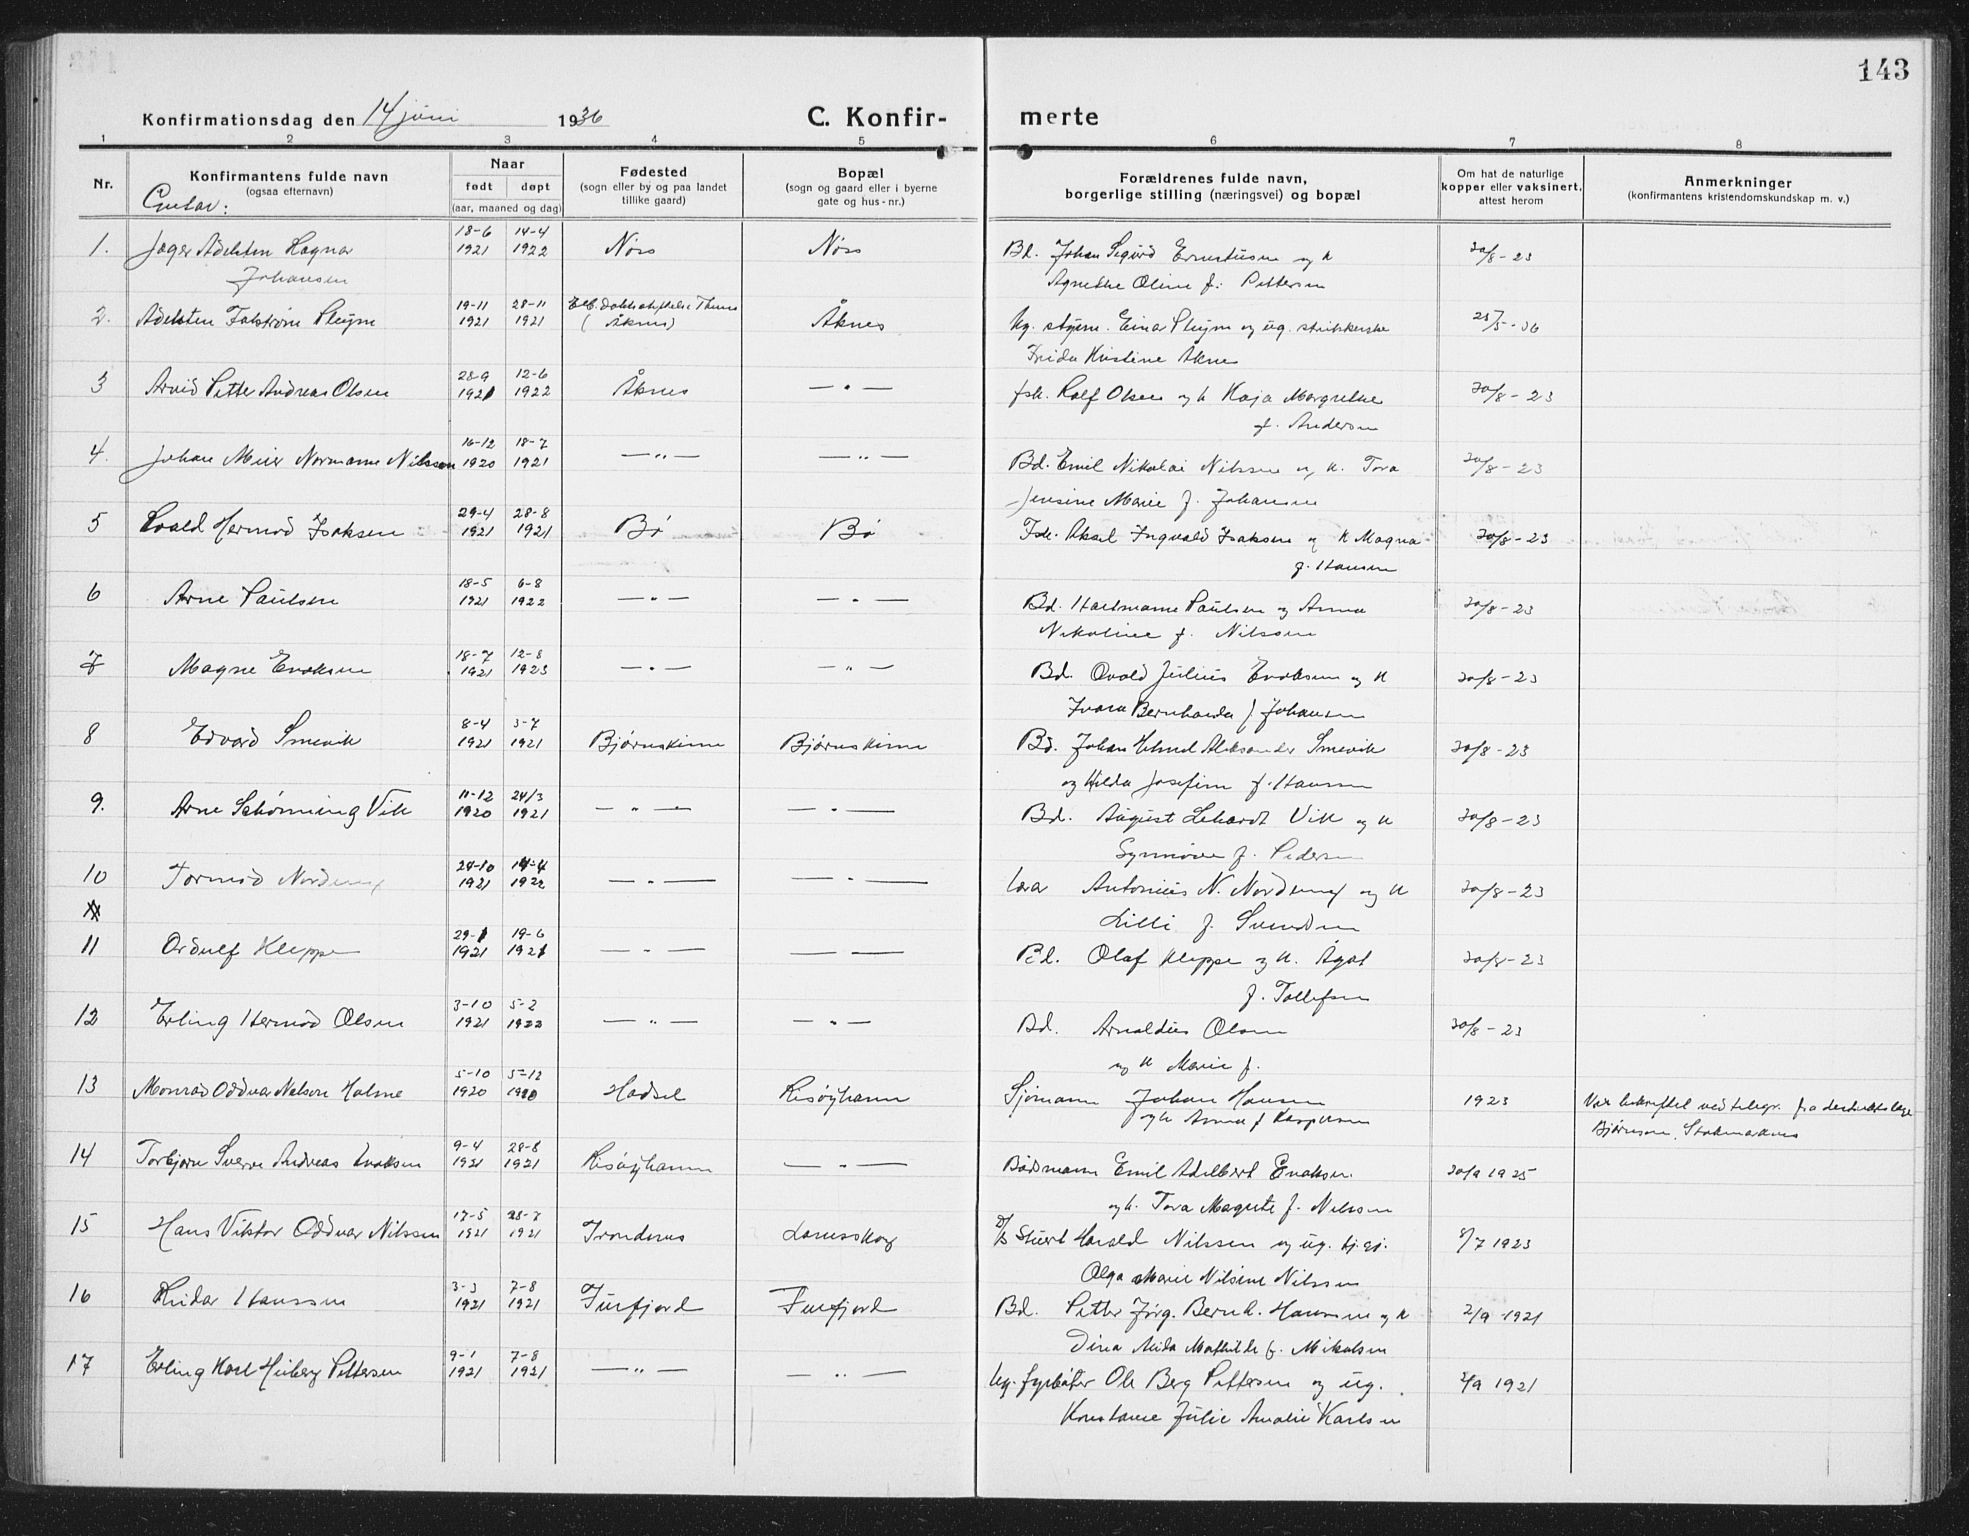 143
Konfirmationsdag den 14 juni 1936
C. Konfir-
merte
1 2 3 4 5 6 7 8
Nr.
Konfirmantens fulde navn
(ogsaa efternavn)
Gutar:
Naar
født døpt
(aar, maaned og dag)
Fødested
(sogn eller by og paa landet
tillike gaard)
Bopæl
(sogn og gaard eller i byerne
gate og hus-nr.)
Forældrenes fulde navn,
borgerlige stilling (næringsvei) og bopæl
Om hat de naturlige
kopper eller vaksinert,
attest herom
Anmerkninger
(konfirmantens kristendomskundskap m. v.)
18-6 14-4
1. Jæger Adelsten Hagnar 1921 1922 Nøss Nøss Bd. Johan Sigurd og k 30/8-23
Johansen Agnethe Oline f. Pettersen
19-11 28-11
2. Adelsten 1921 1921 (Åknes) Åknes Ug. styrm. Einar og ug. 28/5-36
Frida Kristine Åknes
28-9 12-6
3 Arvid Petter Andreas Olsen 1921 1922 Åknes — " — fsk. Rolf Olsen og k Kaja Margrethe 30/8-23
f. Andersen
16-12 18-7
4. Johan Meier Normann Nilssen 1920 1921 — " — — " — Bd. Emil Nikolai Nilssen og k. Tora 30/8-23
Jensine Marie f. Johansen
29-4 28-8
5 Hermod Isaksen 1921 1921 Bø Bø Fsk. Aksel Ingvald Isaksen og k Magna 30/8-23
f. Hansen
18-5 6-8
6 Arne Paulsen 1921 1922 — " — — " — Bd. Hartmann Paulsen og Anna 30/8-23
Nikoline f. Nilssen
18-7 12-8
7 Magne Enoksen 1921 1923 — " — — " — Bd. Ovald Julius Enoksen og k 30/8-23
Ivara Bernharda f Johansen
8-4 3-7
8 Edvard Smevik 1921 1921 Bjørnskinn Bjørnskinn Bd. Johan Aleksander Smevik 30/8-23
og Hilda Josefine f. Hansen
11-12 24/3
9. Arne Schønning Vik 1920 1921 — " — — " — Bd. August Vik og k 30/8-23
Synnøve f. Pedersen
24-10 14-4
10 Tormod 1921 1922 — " — — " — Antonius N. og k 30/8-23
Lilli f. Svendsen
29-1 19-6
11 Ordulf Kleppe 1921 1921 — " — — " — Bd. Olaf Kleppe og k. Ågot 30/8-23
f. Tollefsen
3-10 5-2
12 Erling Hermod Olsen 1921 1922 — " — — " — Bd. Arnoldus Olsen 30/8-23
og k Marie f.
5-10 5-12
13 Monrad Oddvar Nelson Holme 1920 1920 Hadsel Risøyhamn Sjømann Johan Hansen 1923 Vak. bekreftet ved telegr. fra
og k Anna f Kaspersen Bjørnson, Stokmarknes
9-4 28-8
14 Torbjørn Sverre Andreas Enoksen 1921 1921 Risøyhamn — " — Bådsmann Emil Adelbert Enoksen 30/9 1925
og k. Tora Magrete f. Nilssen
17-5 28-7
15 Hans Viktor Oddvar Nilssen 1921 1921 Trondenes Lanesskog Stuert Harald Nilssen og ug. tj.gj. 5/7 1923
Olga Marie Nilsine Nilssen
3-3 7-8
16 Reidar Hanssen 1921 1921 Tusfjord Bd. Petter Jørg. Bernh. Hanssen og k 2/9-1921
Dina Alida Mathilde f. Mikalsen
9-1 7-8
17 Erling Karl Heiberg Pettersen 1921 1921 — " — — " — Ug. fyrbøter Ole Berg Pettersen og ug. 2/9 1921
Konstanse Julie Amalie Karlsen